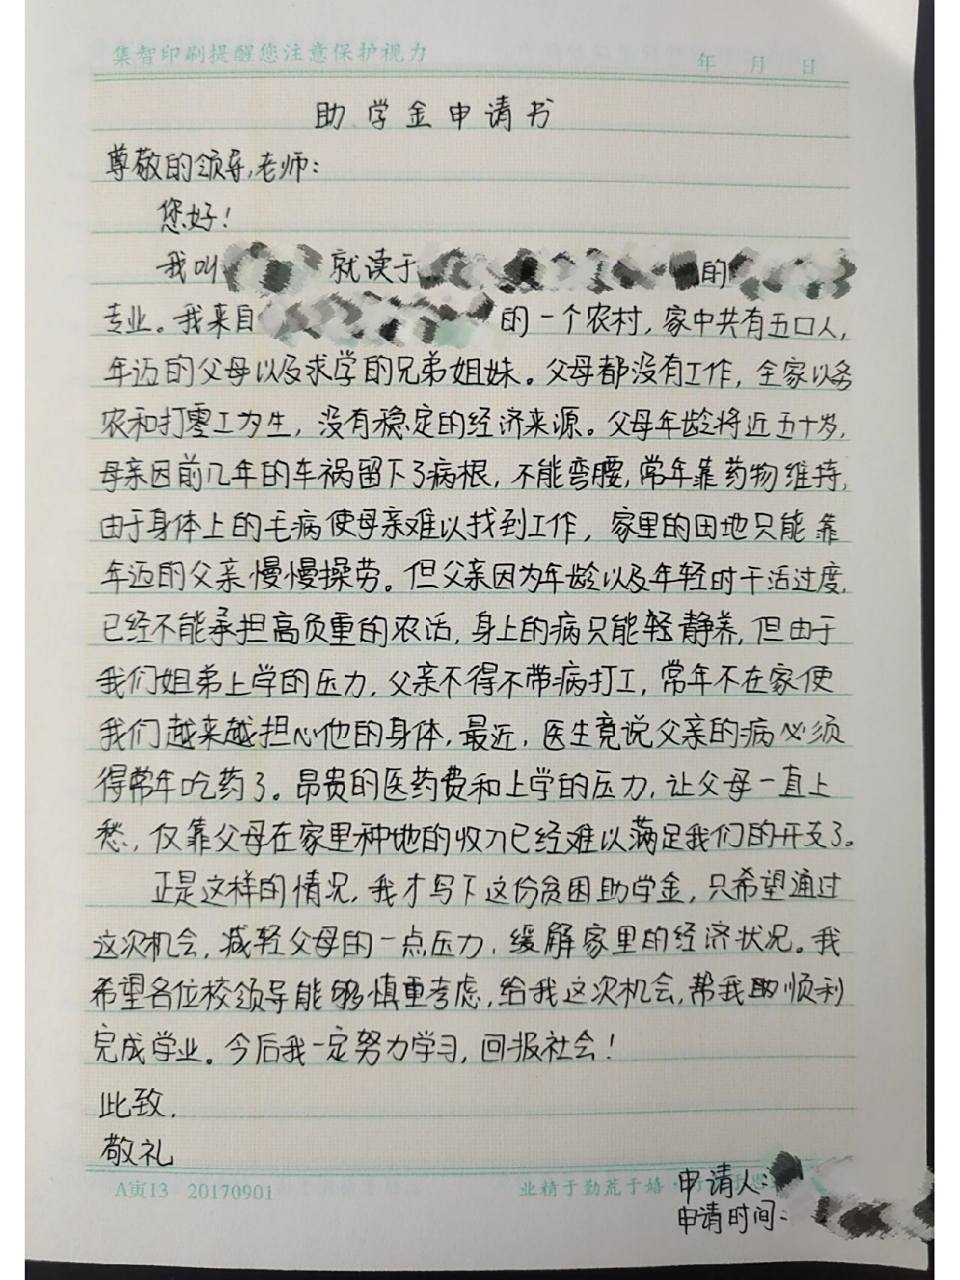 集智印刷提醒您注意保护视力
年 月 日
助学金申请书
尊敬的领导,老师:
您好!
我叫 就读于 的
专业。我来自 的一个农村,家中共有五口人,
年迈的父母以及求学的兄弟姐妹。父母都没有工作,全家以务
农和打零工为生,没有稳定的经济来源。父母年龄将近五十岁,
母亲因前几年的车祸留下了病根,不能弯腰,常年靠药物维持,
由于身体上的毛病使母亲难以找到工作,家里的田地只能靠
年迈的父亲慢慢操劳。但父亲因为年龄以及年轻时干活过度,
已经不能承担高负重的农活,身上的病只能轻静养,但由于
我们姐弟上学的压力,父亲不得不带病打工,常年不在家使
我们越来越担心他的身体,最近,医生竟说父亲的病必须
得常年吃药了。昂贵的医药费和上学的压力,让父母一直上
愁,仅靠父母在家里种地的收入已经难以满足我们的开支了。
正是这样的情况,我才写下这份贫困助学金,只希望通过
这次机会,减轻父母的一点压力,缓解家里的经济状况。我
希望各位校领导能够慎重考虑,给我这次机会,帮我助顺利
完成学业。今后我一定努力学习,回报社会!
此致,
敬礼
A寅13 20170901
业精于勤荒于嬉
申请人:
申请时间: